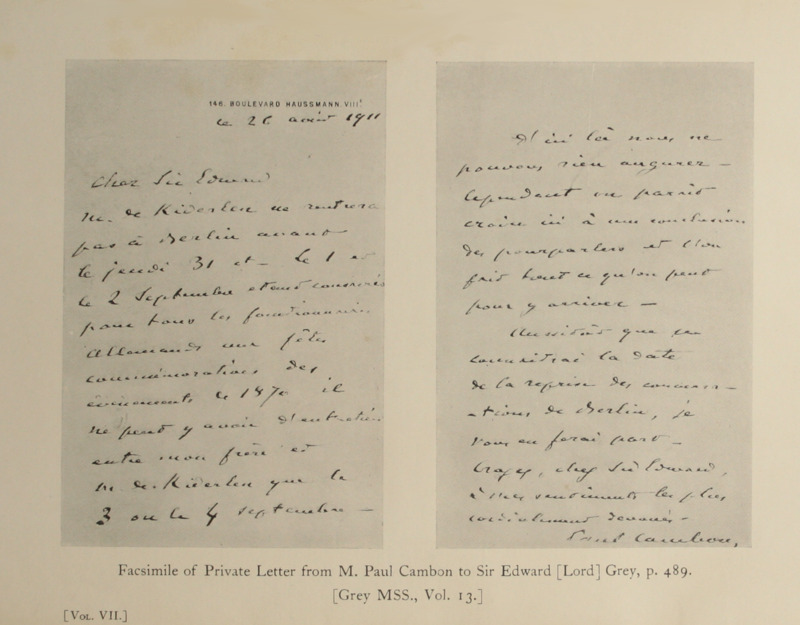 146. BOULEVARD HAUSSMANN. VIIIᵉ
le 26 août 1911
Cher Sir Edward
M. de Kiderlen ne rentrera
pas à Berlin avant
le jeudi 31 ct – Le 1 et
le 2 Septembre étant consacrés
pour tous les fonctionnaires
Allemands aux fêtes
commémoratives des
événements de 1870 il
ne peut y avoir d'entretien
entre mon frère et
M. de Kiderlen que le
3 ou le 4 septembre –
D'ici là nous ne
pouvons rien augurer –
Cependant on paraît
croire ici à une conclusion
des pourparlers et l'on
fait tout ce qu'on peut
pour y arriver –
Aussitôt que je
connaîtrai la date
de la reprise des convers-
-ations de Berlin, je
vous en ferai part –
Croyez, cher Sir Edward,
à mes sentiments les plus
cordialement dévoués –
Paul Cambon,
Facsimile of Private Letter from M. Paul Cambon to Sir Edward [Lord] Grey, p. 489.
[Grey MSS., Vol. 13.]
[Vol. VII.]